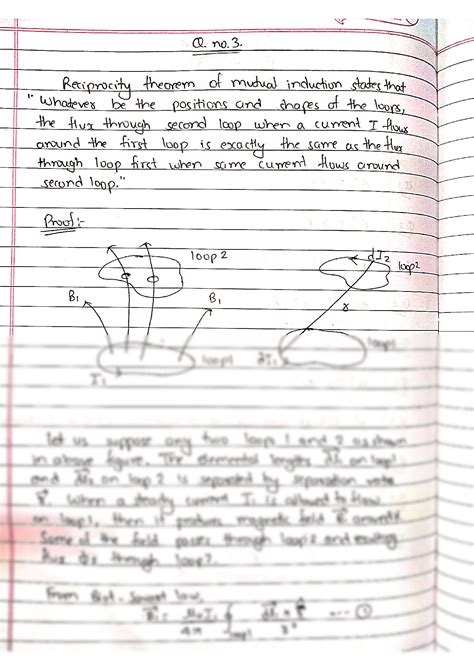 Q. no.3.
Reciprocity theorem of mutual induction states that
"Whatever be the positions and shapes of the loops,
the flux through second loop when a current I flows
around the first loop is exactly the same as the flux
through loop first when same current flows around
second loop."
Proof:-
loop 2
dl2
loop2
B1
B1
r
loop1
loop1
I1
dl1
Let us suppose any two loops 1 and 2 as shown
in above figure. The elemental lengths dl1 on loop1
and dl2 on loop 2 is separated by separation
When a steady current I1 is allowed to flow
on loop1, then it produces magnetic field B around
Some of the field passes through loop 2 and
flux through loop2.
From Biot-Savart law,